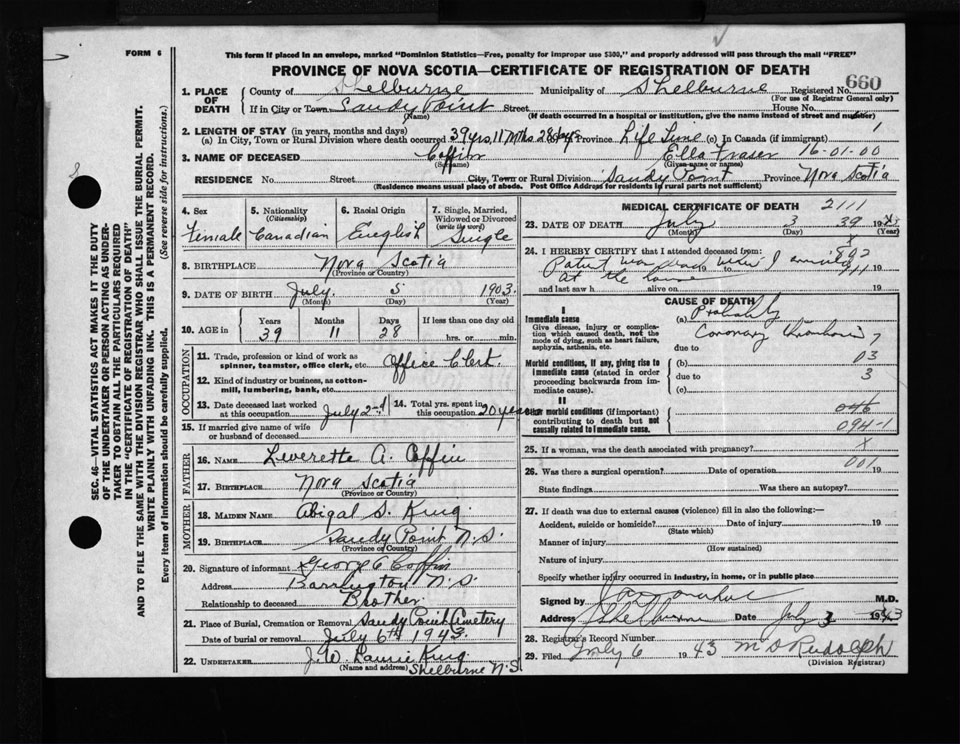 FORM 6
This form if placed in an envelope, marked "Dominion Statistics—Free, penalty for improper use $300," and properly addressed will pass through the mail "FREE"
PROVINCE OF NOVA SCOTIA—CERTIFICATE OF REGISTRATION OF DEATH
660
1. PLACE OF DEATH
County of Shelburne Municipality of Shelburne Registered No.
(For use of Registrar General only)
If in City or Town Sandy Point Street House No.
(Name) (If death occurred in a hospital or institution, give name instead of street and number)
2. LENGTH OF STAY (in years, months and days)
(a) In City, Town or Rural Division where death occurred 39 yrs, 11 Mths 28 days (b) In Province Life Time (c) In Canada (if immigrant) 1
3. NAME OF DECEASED Coffin Ella Fraser 16-01-00
(Surname) (Given name or names)
RESIDENCE No. Street City, Town or Rural Division Sandy Point Province Nova Scotia
(Residence means usual place of abode. Post Office Address for residents in rural parts not sufficient)
4. Sex
Female
5. Nationality (Citizenship)
Canadian
6. Racial Origin
English
7. Single, Married, Widowed or Divorced (write the word)
Single
8. BIRTHPLACE Nova Scotia
(Province or Country)
9. DATE OF BIRTH July 5 1903
(Month) (Day) (Year)
10. AGE in
Years Months Days If less than one day old
39 11 28 hrs. or min.
OCCUPATION
11. Trade, profession or kind of work as spinner, teamster, office clerk, etc. Office Clerk
12. Kind of industry or business, as cotton-mill, lumbering, bank, etc.
13. Date deceased last worked at this occupation July 2nd
14. Total yrs. spent in this occupation 20 years
15. If married give name of wife or husband of deceased
FATHER
16. NAME Leverette A. Coffin
17. BIRTHPLACE Nova Scotia
(Province or Country)
MOTHER
18. MAIDEN NAME Abigal S. King
19. BIRTHPLACE Sandy Point N.S.
(Province or Country)
20. Signature of informant George A Coffin
Address Barrington N.S.
Relationship to deceased Brother
21. Place of Burial, Cremation or Removal Sandy Point Cemetery
Date of burial or removal July 6th 1943.
22. UNDERTAKER J. W. Laurie King
(Name and address) Shelburne N.S
MEDICAL CERTIFICATE OF DEATH 2111
23. DATE OF DEATH July 3 39 19
(Month) (Day) (Year)
24. I HEREBY CERTIFY that I attended deceased from:
when I arrived
19 to 19
at the
and last saw h alive on 19
CAUSE OF DEATH
I
Immediate cause
Give disease, injury or complication which caused death, not the mode of dying, such as heart failure, asphyxia, asthenia, etc.
(a) Probably
Coronary Thrombosis 7
due to
03
Morbid conditions, if any, giving rise to immediate cause (stated in order proceeding backwards from immediate cause).
(b)
due to 3
(c)
II
Other morbid conditions (if important) contributing to death but not causally related to immediate cause.
046
094-1
25. If a woman, was the death associated with pregnancy? x
001
26. Was there a surgical operation? Date of operation 19
State findings Was there an autopsy?
27. If death was due to external causes (violence) fill in also the following:—
Accident, suicide or homicide? Date of injury 19
(State which)
Manner of injury
(How sustained)
Nature of injury
Specify whether injury occurred in industry, in home, or in public place
Signed by M.D.
Address Shelburne Date July 3 1943
28. Registrar's Record Number
29. Filed July 6 1943 M S Rudolph
(Division Registrar)
SEC. 46—VITAL STATISTICS ACT MAKES IT THE DUTY
OF THE UNDERTAKER OR PERSON ACTING AS UNDER-
TAKER TO OBTAIN ALL THE PARTICULARS REQUIRED
IN THE "CERTIFICATE OF REGISTRATION OF DEATH"
AND TO FILE THE SAME WITH THE DIVISION REGISTRAR WHO SHALL ISSUE THE BURIAL PERMIT.
WRITE PLAINLY WITH UNFADING INK. THIS IS A PERMANENT RECORD.
Every item of information should be carefully supplied. (See reverse side for instructions.)